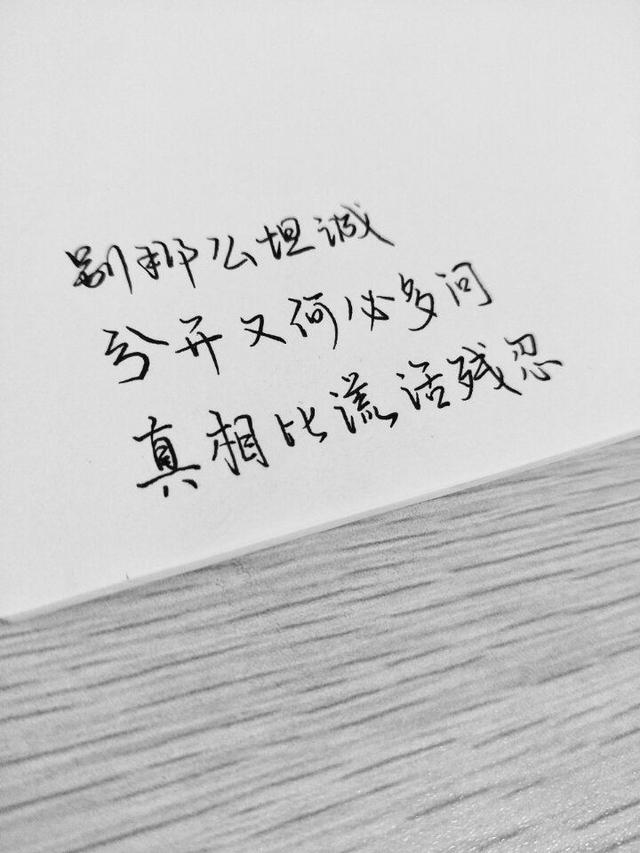 别那么坦诚
分开又何必多问
真相比谎话残忍